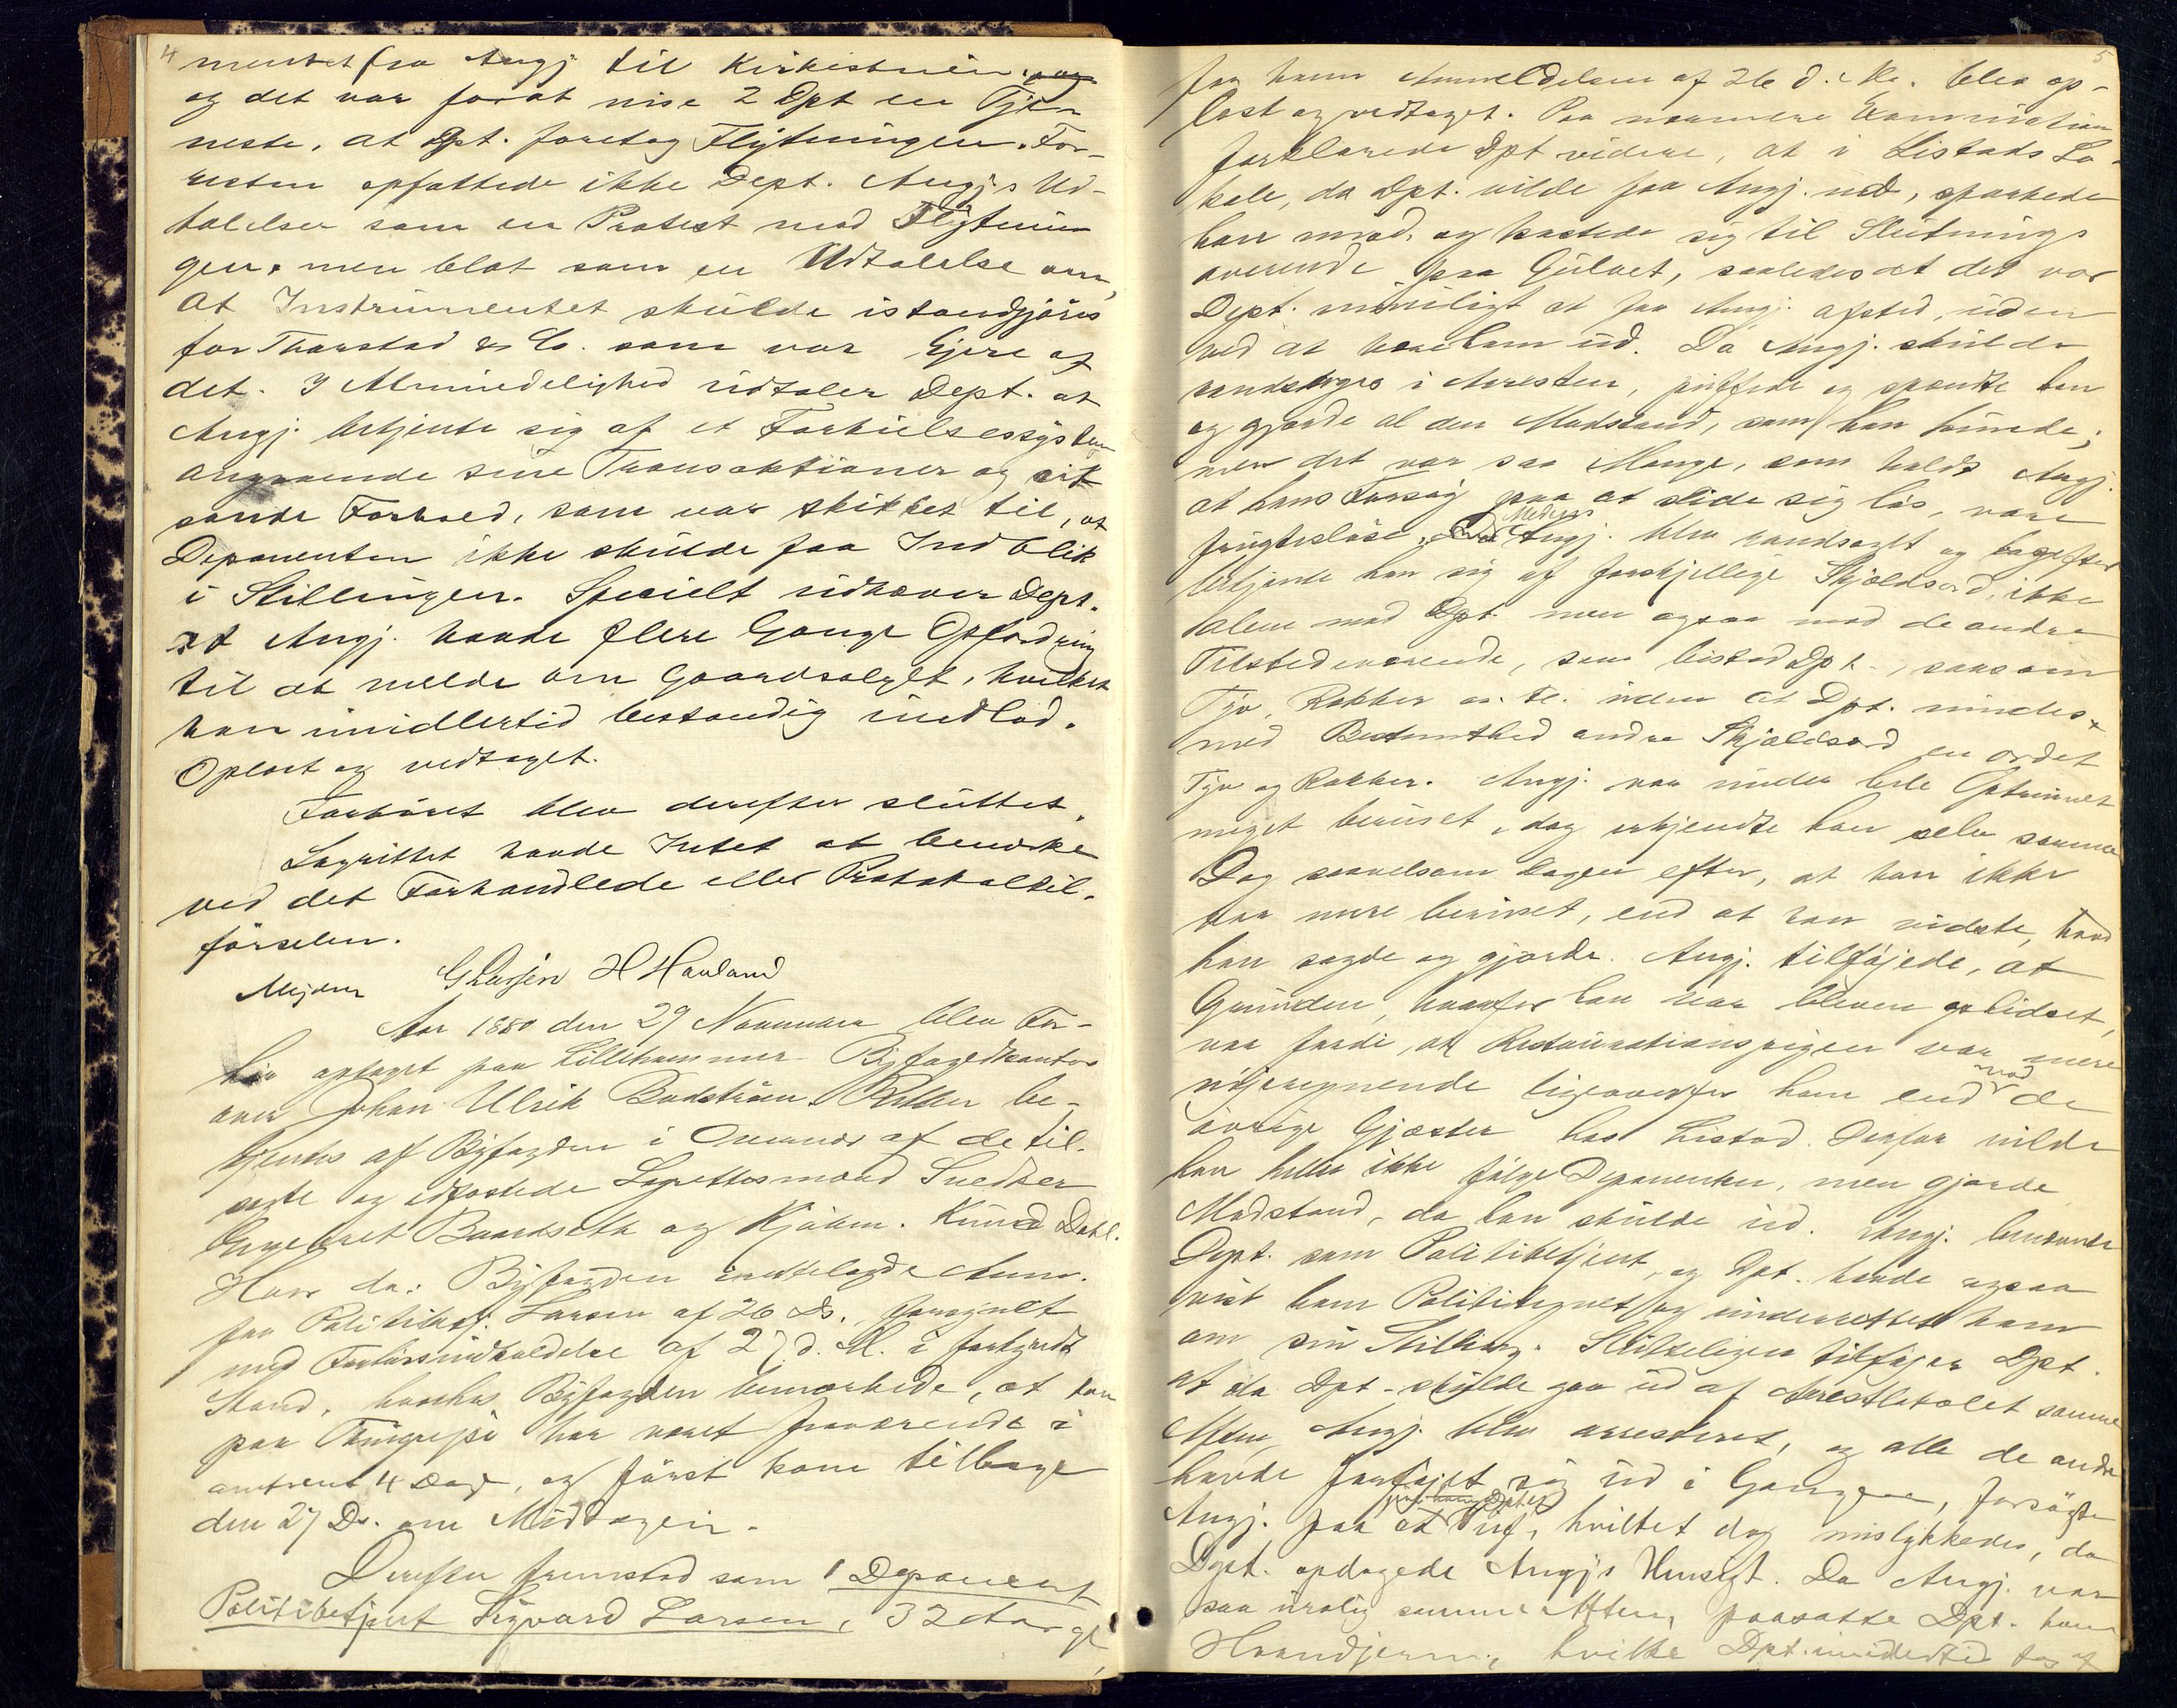 4
mentet fra Angj til Kirkestuen,
og det var forat vise 2 Dpt en Tje-
neste, at Dpt. foretog Flytningen. For-
resten opfattede ikke Dept. Angjs Ud-
talelser som en Protest mod Flytnin
gen, men blot som en Udtalelse om,
at Instrumentet skulde istandgjöres
for Tharstad & Co. som var Ejere af
det. I Almindelighed udtaler Dept. at
Angj. betjente sig af et Forhielsessystem
angaaende sine Transaktioner og sit
sande Forhold, som var skikket til, at
Deponenten ikke skulde faa Indblik
i Stillingen. Specielt udhæver Dept.
at Angj. havde flere Gange Opfordring
til at melde om Gaardsalget, hvilket
han imidlertid bestandig undlod.
Oplæst og vedtaget.
Forhöret blev derefter sluttet.
Lagrettet havde Intet at bemærke
ved det Forhandlede eller Protokoltil-
förselen.
G Larsen H Havland
Aar 1880 den 29 November blev For-
hör optaget paa Lillehammer Byfogedkontor
over Johan Ulrik Budström. Retten be-
tjentes af Byfogden i Overvær af de til-
sagte og edfæstede Lagrettesmænd Snedker
Engebret Baardseth og Kjöbm. Knud Dahl.
Hvor da: Byfogden fremlagde Anm.
fra Politibetj. Larsen af 26 Ds., forsynet
med Forhörsindkaldelse af 27 d. M. i forkyndt
Stand, hvorhos Byfogden bemærkede, at han
paa Tingrejse har været fraværende i
omtrent 4 Dage, og först kom tilbage
den 27 Ds. om Middagen.
Derefter fremstod som 1 Deponent
Politibetjent Sigvard Larsen, 32 Aar gl,
5
for ham Anmeldelsen af 26 d. M. blev op-
læst og vedtaget. Paa nærmere Examination
forklarede Dpt videre, at i Listads Lo-
kale, da Dpt. vilde faa Angj. ud, sparkede
han imod, og kastede sig til Slutnings
overende paa Gulvet, saaledes at det var
Dept. umuligt at faa Angj. afsted, uden
ved at bære ham ud. Da Angj. skulde
randsages i Arresten, puffede og spændte han
og gjorde al den Modstand, som han kunde;
men det var saa Mange, som holdt Angj.
at hans Forsög paa at slide sig lös, vare
frugteslöse. Medens Angj. blev randsaget og bagefter
betjente han sig af forskjellige Skjældsord, ikke
alene mod Dpt men ogsaa mod de andre
Tilstedeværende, som bistod Dpt., saasom
Tyv, Rakker o. s. v. uden at Dpt. mindes
med Bestemthed andre Skjældsord en ordet
Tyv og Rakker. Angj. var under hele Optrinnet
meget beruset, dog erkjendte han selv samme
Dag saavelsom Dagen efter, at han ikke
var mere beruset, end at han vidste, hvad
han sagde og gjorde. Angj. tilföjede, at
Grunden, hvorfor han var bleven ophidset,
var fordi, at Restaurationspigen var mere
nöjeregnende ligeoverfor ham end mod de
övrige Gjæster hos Listad. Derfor vilde
han heller ikke fölge Deponenten, men gjorde
Modstand, da han skulde ud. Angj. benævnte
Dept. som Politibetjent, og Dpt. havde ogsaa
vist ham Politiskiltet og underrettet ham
om sin Stilling. Sluttelig tilföjer Dpt.
at da Dpt. skulde gaa ud af Arrestlokalet samme
Aften Angj. blev arresteret, og alle de andre
havde forföjet sig ud i Gangen, forsögte
Angj. paa at Dptet Puf, hvilket dog mislykkedes, da
Dpt. opdagede Angj's Hensigt. Da Angj. var
saa urolig samme Aften, paasatte Dpt. ham
Haandjern, hvilke Dpt. imidlertid tog af